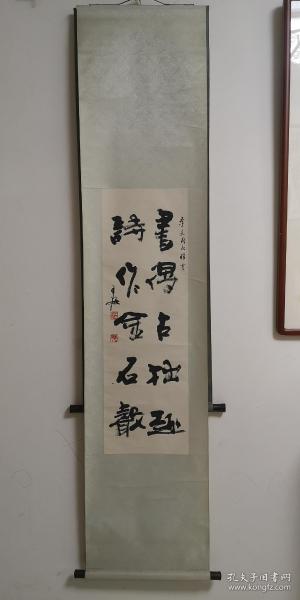 書得古拙趣
詩作金石聲
孔夫子旧书网
www.kongfz.com